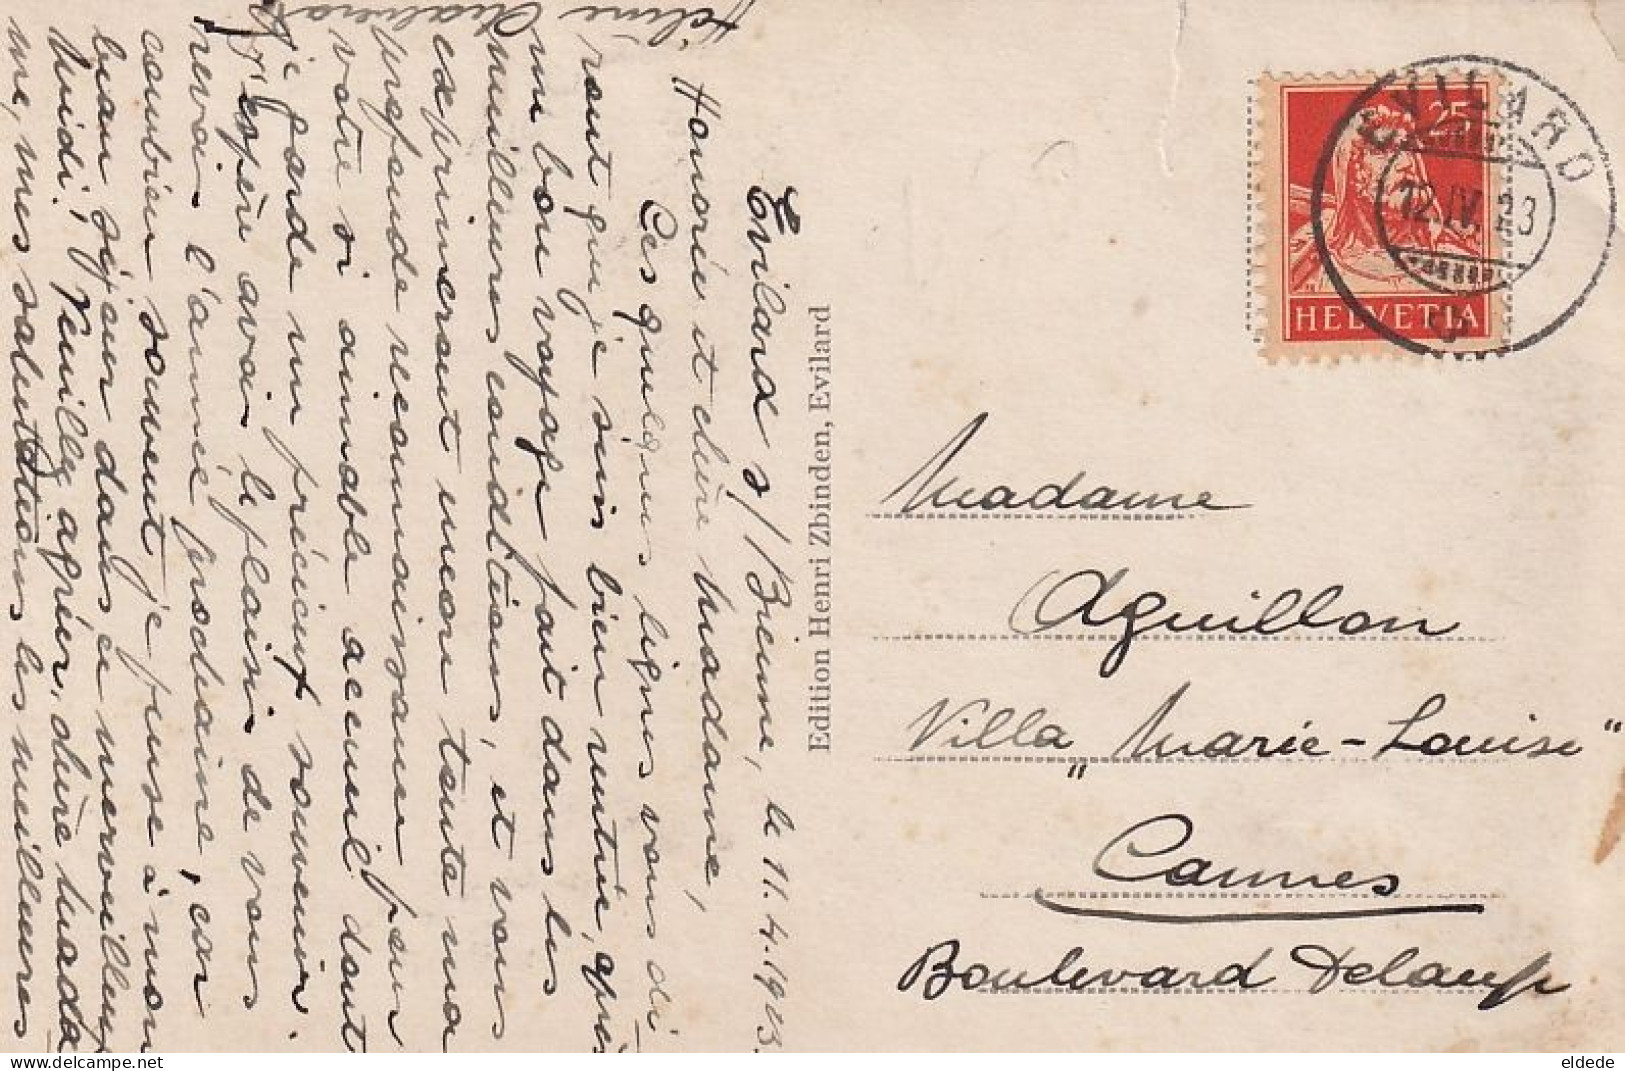 Evilard s/Bienne, le 11.4.1923.
Honorée et chère Madame,
Ces quelques lignes vous di-
ront que je suis bien rentrée, après
un bon voyage fait dans les
meilleures conditions, et vous
exprimeront encore toute ma
profonde reconnaissance pour
votre si aimable accueil dont
je garde un précieux souvenir.
J'espère avoir le plaisir de vous
revoir l'année prochaine, car
combien souvent je pense à mon
beau séjour dans ce merveilleux
Midi! Veuillez agréer, chère Mada
me, mes salutations les meilleures
Hélène
Edition Henri Zbinden, Evilard
EVILARD
12.IV.23
25
HELVETIA
Madame
Aguillon
Villa "Marie-Louise"
Cannes
Boulevard Delaup
eldede